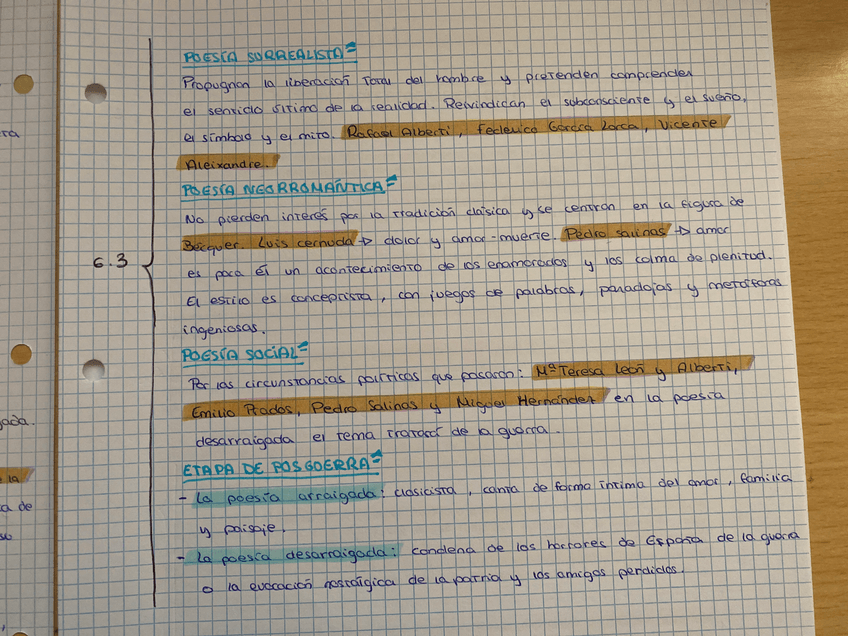 POESÍA SURREALISTA=
Propugnan la liberación total del hombre y pretenden comprender
el sentido último de la realidad. Reivindican el subconsciente y el sueño,
el símbolo y el mito. Rafael Alberti, Federico García Lorca, Vicente
Aleixandre.
POESÍA NEORROMÁNTICA=
No pierden interés por la tradición clásica y se centran en la figura de
Bécquer. Luis Cernuda → dolor y amor-muerte. Pedro Salinas → amor
6.3
es para él un acontecimiento de los enamorados y los colma de plenitud.
El estilo es conceptista, con juegos de palabras, paradojas y metáforas
ingeniosas.
POESÍA SOCIAL=
Por las circunstancias políticas que pasaron: Mª Teresa León y Alberti,
Emilio Prados, Pedro Salinas y Miguel Hernández en la poesía
desarraigada el tema tratará de la guerra.
ETAPA DE POSGUERRA=
- La poesía arraigada: clasicista, canta de forma íntima del amor, familia
y paisaje.
- La poesía desarraigada: condena de los horrores de España de la guerra
o la evocación nostálgica de la patria y los amigos perdidos.
ra
gada.
la
a de